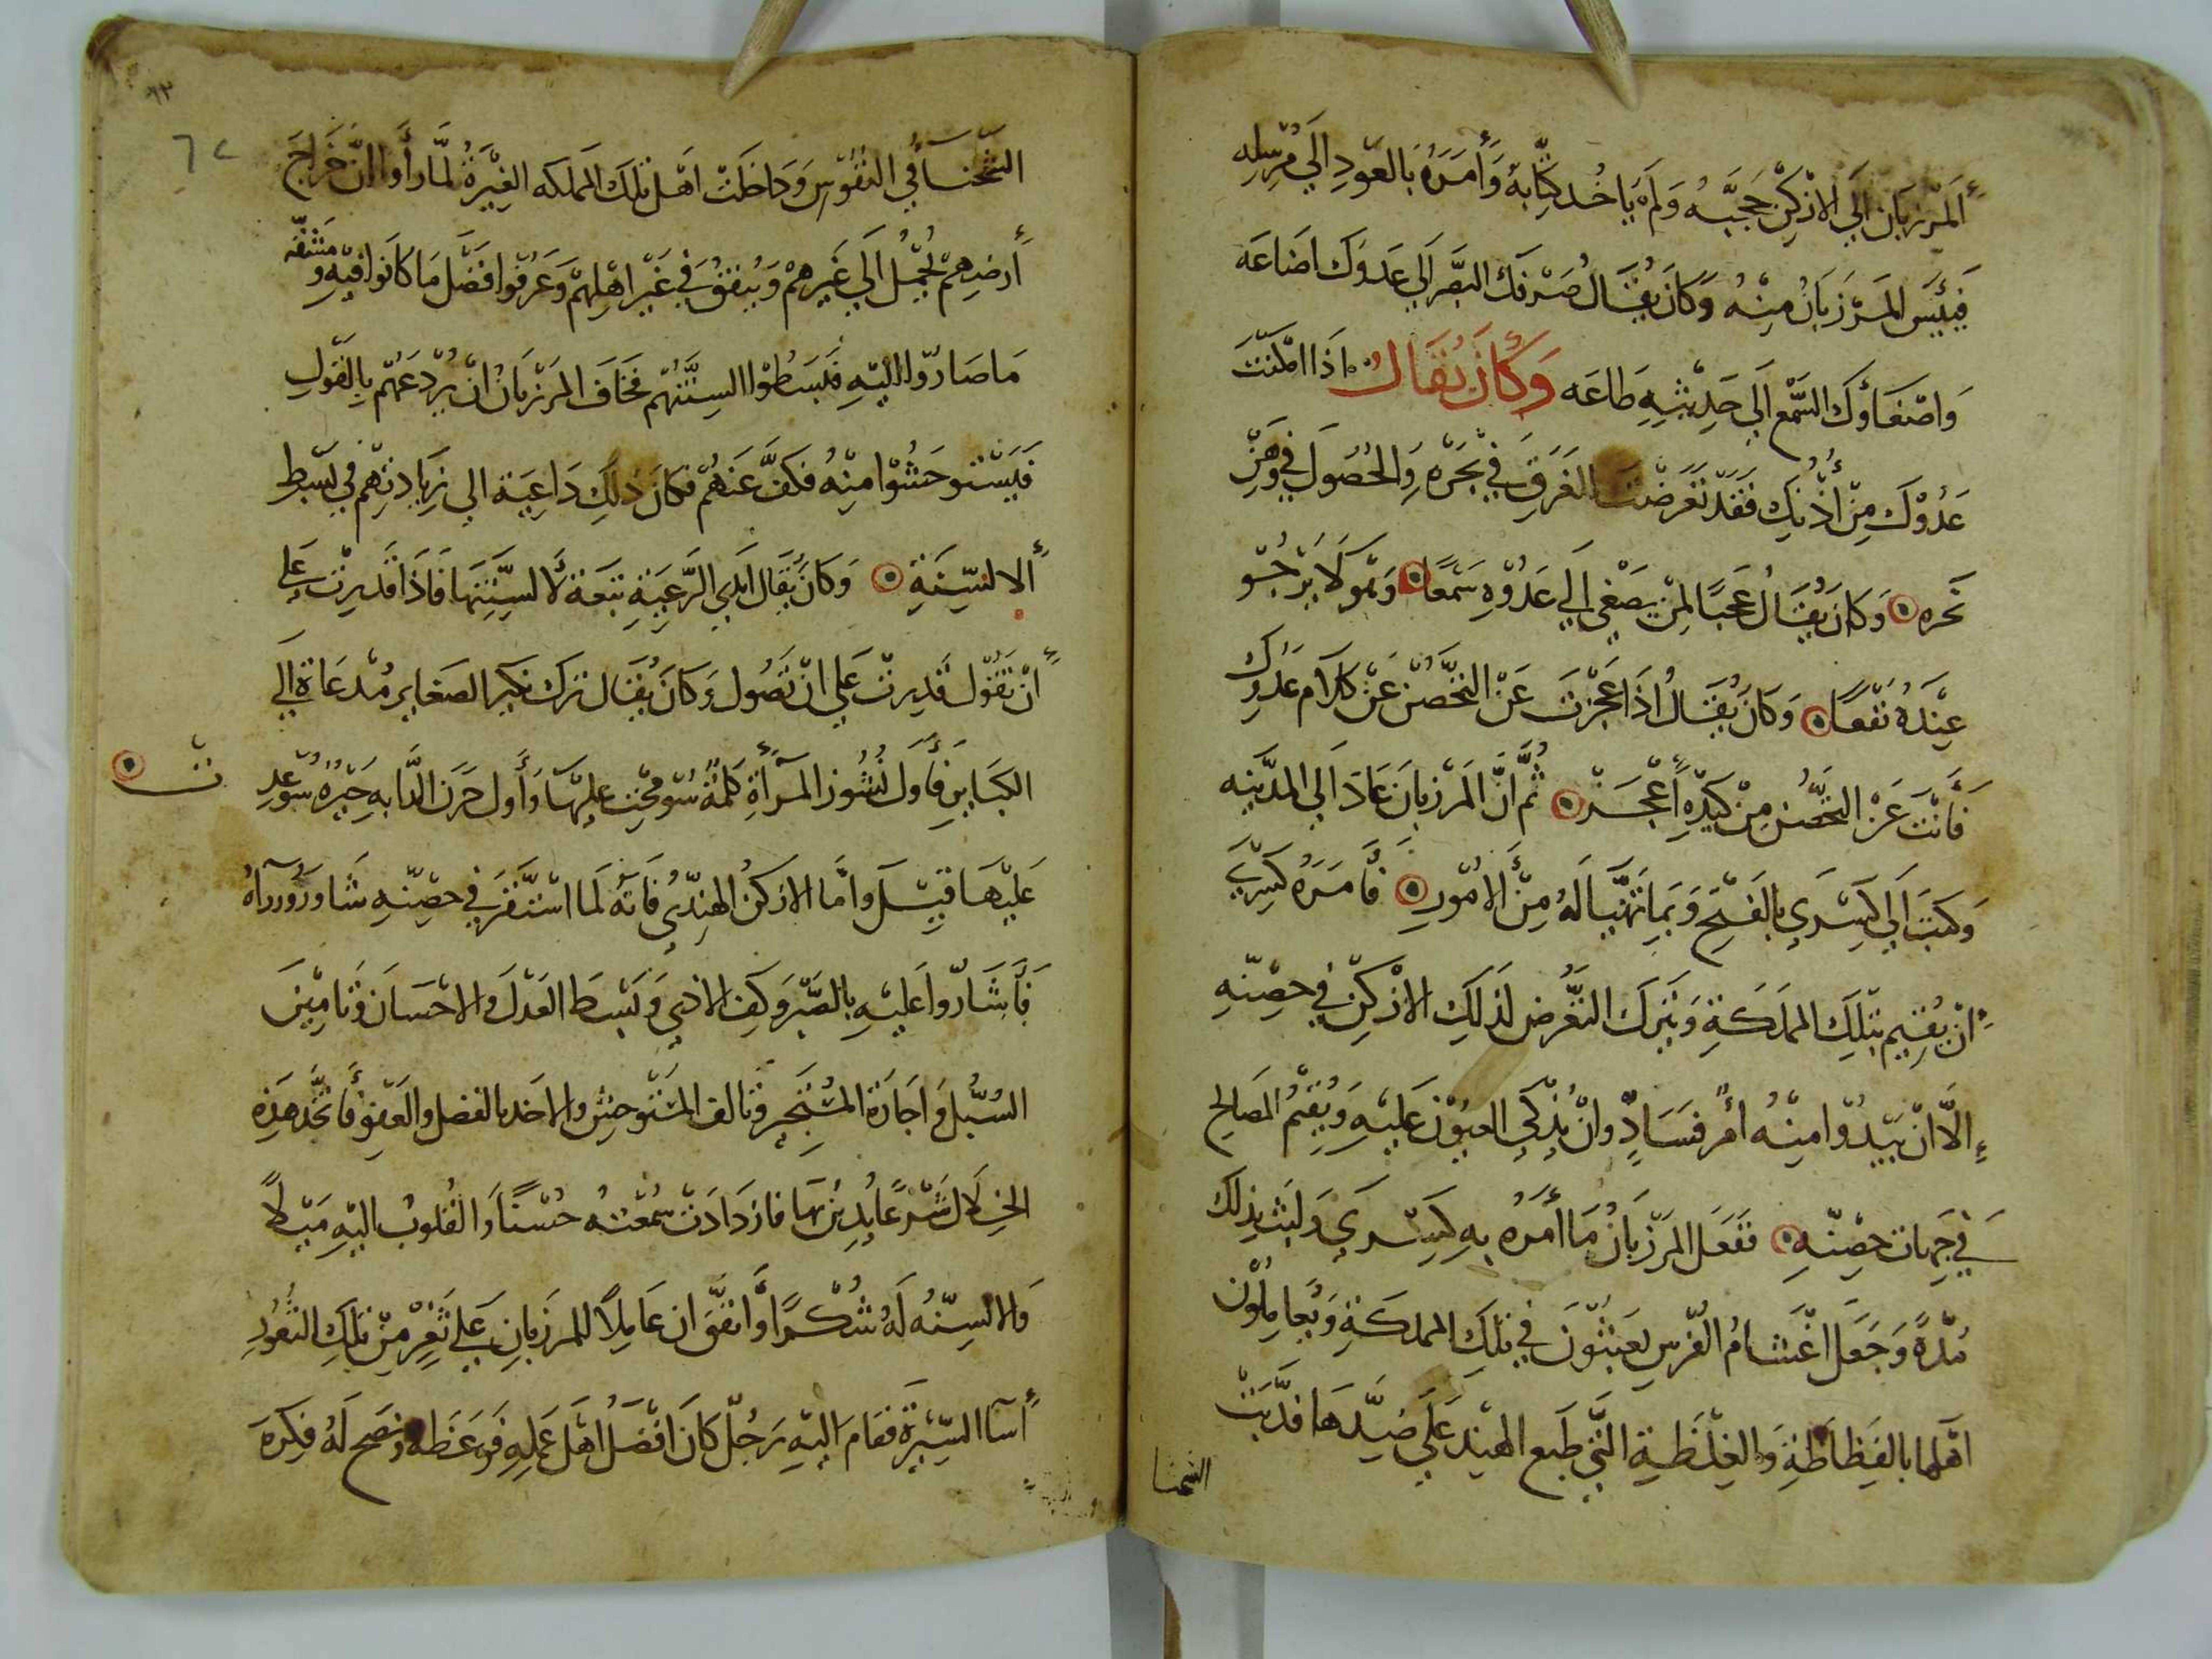 المَرزبَان الَي الازكن حَجَبَه وَلَم يَاخُد كِتَابهُ وَأمَرَهُ بَالعَودِ الَي مُرسِلِه
فَيَئِسَ المَرْزبَانُ مِنْهُ وَكَانَ يُقَالُ صَرْفك البَصَر الَي عَدوّك اضَاعَه
وَاصْغَاؤك السَّمْعَ الَي حَدِيثِهِ طَاعَه وَكَانَ يُقَالُ اذَا امْكَنْتَ
عَدُوّكَ مِن أذُنِك فَقَد تَعَرضْتَ الغَرَقِ في بَحْرهِ وَالحُصُولَ في وَهَنِ
نَحره وَكانَ يُقَالُ عَجَبًا لِمَنْ يصَغي الَي عَدُوّهِ سَمْعًا وَهُو لَا يَرْجُو
عِنْدَهُ نَفْعًا وَكَانَ يُقَالُ اذَا عَجَزتَ عَن التحَصُّن عَن كَلام عَدوك
فَأنْتَ عَن التحَصُّن مِنْ كَيْدهِ أعْجَز ثُمَّ انَّ المَرزبانَ عَادَ الَي المدَينِه
وَكتَبَ الَي كِسْرَي بِالفَتحِ وَبمَا تَهَيَّا لَهُ مِنَ الأمُورِ فَأَمَرَهُ كِسْرَي
انْ يُقيِم بتلِكَ المملَكَةِ وَيَترك التعَّرض لذلِكَ الازكِن في حصْنهِ
إلاّ انْ يَبْدُوا مِنْهُ أمْر فسَادٍ وانْ يُذكي العيُوْنَ عَليهِ وَيُقيمُ المَصَالح
في جَهَات حِصْنهِ ففَعَل المَرْزبَانُ مَا أمَرَهُ بهِ كِسْرَي وَلبَث بذلك
مُدَّةً وَجَعَل اغْتَشامُ الفُرْسِ يَعبَثُونَ في تلِكَ المملكَةِ وَيُعامِلُوْن
اهَلها بالفَظاظَةِ وَالغِلْظَةِ التّي طَبع الهنِدَ عَلَي ضِدّهَا فدَبَّتْ
الشحنا
٦٢
الشّحنَآءُ في النفُوْسِ وَدَاخَلتْ اهَل تِلكَ المَملكَه الغِيْرَةُ لمَّا رأوا انّ خَراجَ
أرضِهِمْ يُحْمَلُ الَي غَيرِهمْ وَيُنفَقُ في غَيْر اهْلِهمْ وَعَرفُوا فَضْلَ مَا كَانوا فيْهِ وَمَشقّه
مَا صَارُوا اليْهِ فَبَسَطُوْا السِنَتَهُم فخَافَ المَرْزبَانُ انْ يَرْدَعَهُم بِالقَولِ
فَيَسْتوحَشُوْا مِنْهُ فكَفَّ عَنهُمْ فكَانَ ذلِكَ دَاعِيَة الي زيَادتِهمْ في بَسْط
ألالسِنَةِ وَكانَ يُقَال ايدي الرَّعِيَةِ تبَعَة لألسِنَتِهَا فَاذَا قَدِرتْ عَلي
أنْ تَقُوْل قَدِرتْ عَلَي انْ تَصُول وَكَانَ يُقَال تَرك نكير الصَغاير مُدْعَاة الَي
الكبَاير فَأوَل نُشُوز المَرْأةِ كَلمَةُ سُومحَتْ عليْهَا وَأول حَرَن الدَّابهِ حَيْرهُ سُوعِدت
عَليْهَا قِيْل وامَّا الازكنُ الهنِديُ فَانهُ لَما اسْتقَر في حصِنهِ شَاوَرَ وزرآهُ
فَأشَارُوا عَليْهِ بالصَّبْرِ وَكَف الاذي وَبسْط العَدْل والاحسَان وَتَامِيْنَ
السُبُل وَاجَارَة المُسْتَجير وتالف المسْتوحِش والاخد بالفضل والعَفو فَأتخَّد هَذِه
الخِلَال شَرْعًا يُدِيْن بهَا فازدَادَتْ سُمْعَتهُ حُسْنًا وَالقُلوبُ اليْهِ مَيْلاً
وَالالسِنهُ لَهُ شُكْرًا وَاتفَّق ان عَامِلاً للمرزبانِ عَلي ثَغِر مِنْ تِلكَ الثغُورِ
أسآ السِّيْرَة فقَام اليْهِ رَجُل كَانَ افْضَل اهْل عَمَلِهِ فَوعَظهُ ونصَح لَهُ فكِرهَ